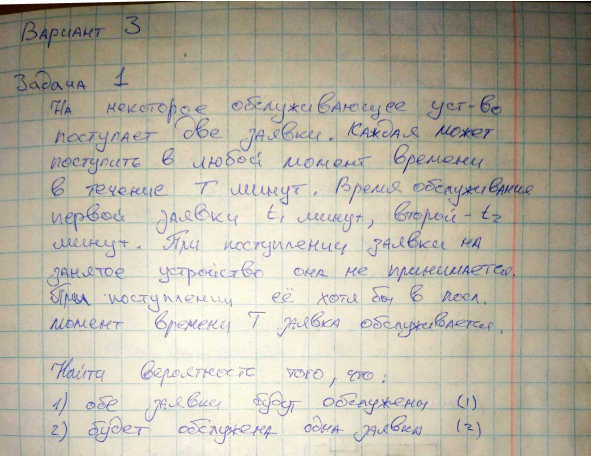 Вариант 3
Задача 1
На некоторое обслуживающее уст-во
поступает две заявки. Каждая может
поступить в любой момент времени
в течение T минут. Время обслуживание
первой заявки t₁ минут, второй - t₂
минут. При поступлении заявки на
занятое устройство она не принимается.
При поступлении её хотя бы в посл.
момент времени T заявка обслуживается.
Найти вероятность того, что:
1) обе заявки будут обслужены (1)
2) будет обслужена одна заявка (2)